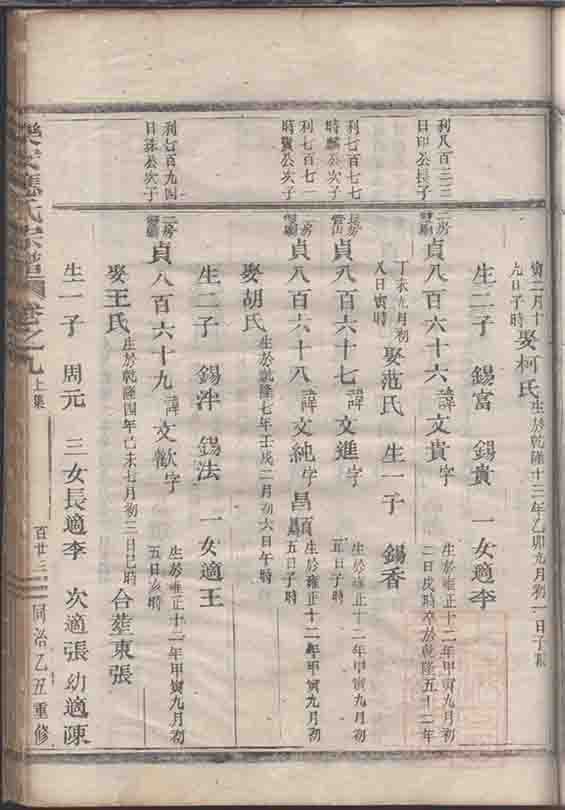 寅二月十九日子時 娶柯氏 生於乾隆十三年乙卯九月初一日子時
生二子 錫富 錫貴 一女適李
利八百三三日印公長子
二房 貞八百六十六 諱文貴字 生於雍正十二年甲寅九月初二日戌時卒於乾隆五十二年
丁未九月初八日寅時 娶范氏 生一子 錫香
利七百七七時麟公次子
長房 貞八百六十七 諱文進字 生於雍正十二年甲寅九月初五日子時
利七百七一時寶公次子
房 貞八百六十八 諱文純字昌 生於雍正十二年甲寅九月初五日子時
娶胡氏 生於乾隆七年壬戌二月初六日午時
生二子 錫泮 錫法 一女適王
利七百九四日 公次子
二房 貞八百六十九 諱文歡字 生於雍正十二年甲寅九月初五日亥時
娶王氏 生於乾隆四年己未七月初三日巳時 合葬東張
生一子 周元 三女長適李 次適張 幼適陳
樂安應氏宗譜 卷之九 上集 百廿三 同治乙丑重修